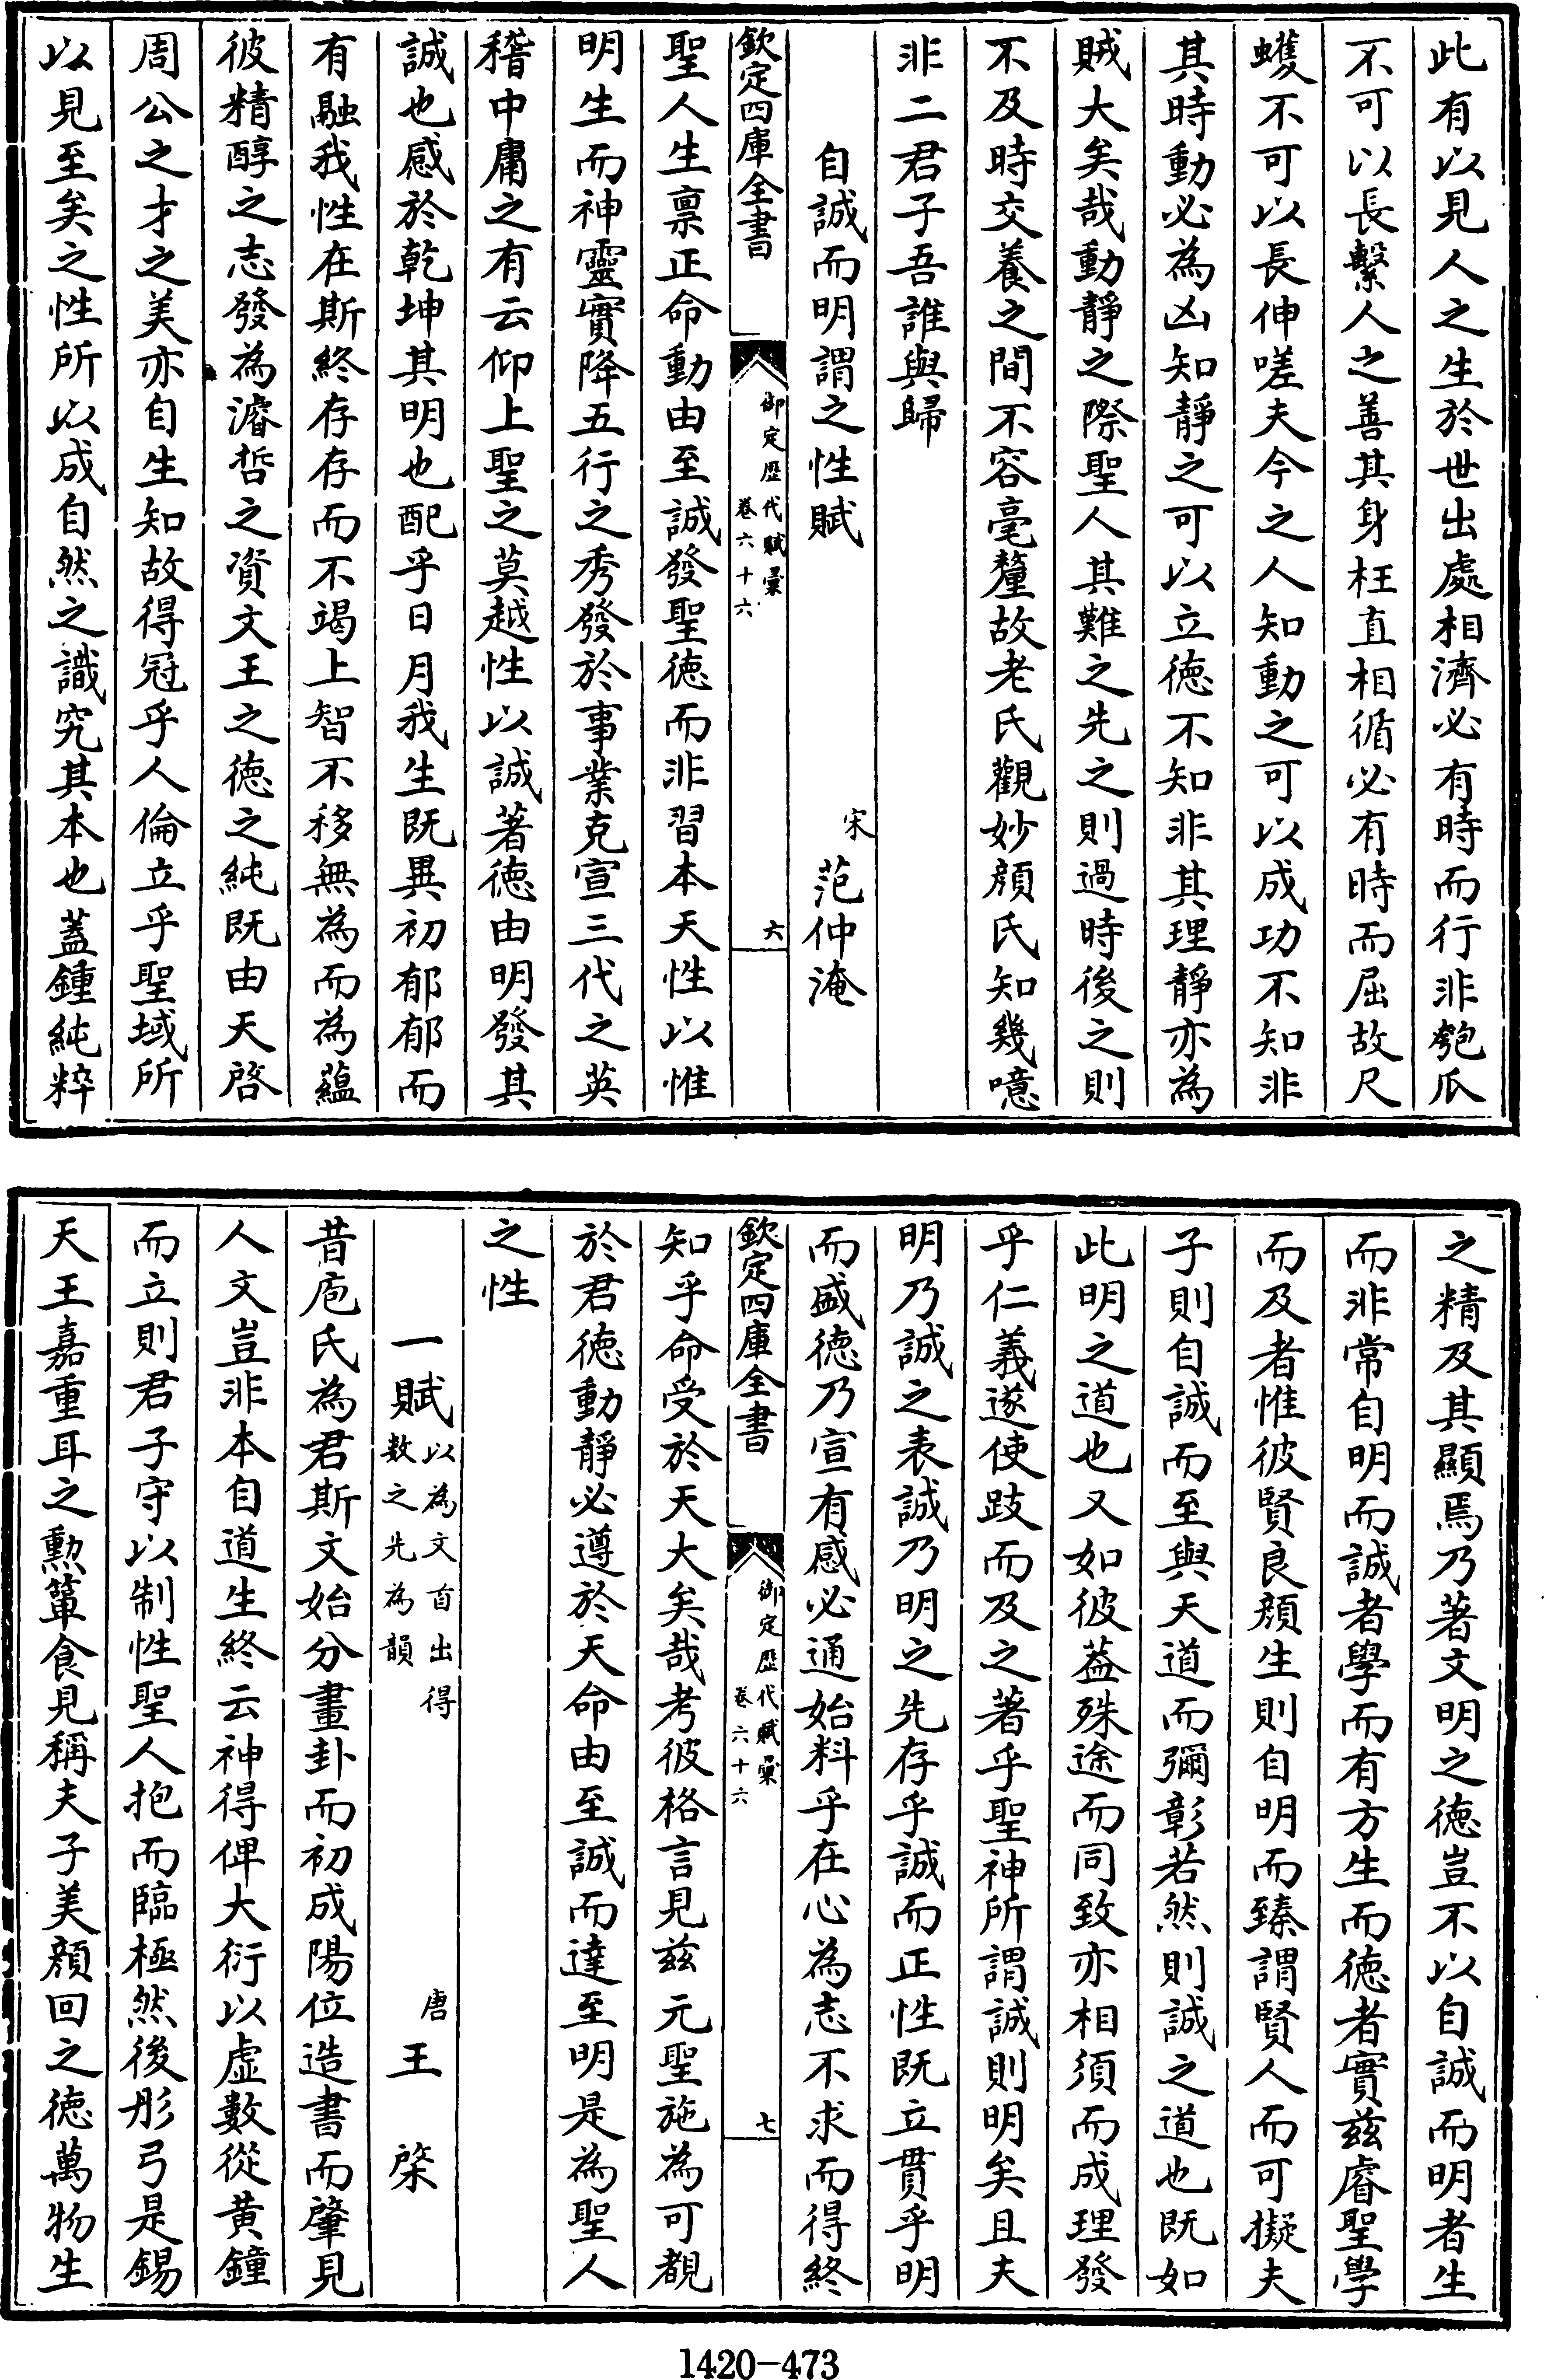 此有以見人之生於世出處相濟必有時而行非匏瓜
不可以長繫人之善其身枉直相循必有時而屈故尺
蠖不可以長伸嗟夫今之人知動之可以成功不知非
其時動必為凶知靜之可以立徳不知非其理靜亦為
賊大矣哉動靜之際聖人其難之先之則過時後之則
不及時交養之間不容毫釐故老氏觀妙顔氏知幾噫
非二君子吾誰與歸
自誠而明謂之性賦 宋 范仲淹
欽定四庫全書 御定歴代賦彚 卷六十六 六
聖人生禀正命動由至誠發聖徳而非習本天性以惟
明生而神靈實降五行之秀發於事業克宣三代之英
稽中庸之有云仰上聖之莫越性以誠著徳由明發其
誠也感於乾坤其明也配乎日月我生既異初郁郁而
有融我性在斯終存存而不竭上智不移無為而為蘊
彼精醇之志發為濬哲之資文王之徳之純既由天啓
周公之才之美亦自生知故得冠乎人倫立乎聖域所
以見至矣之性所以成自然之識究其本也蓋鍾純粹
之精及其顯焉乃著文明之徳豈不以自誠而明者生
而非常自明而誠者學而有方生而徳者實兹睿聖學
而及者惟彼賢良顔生則自明而臻謂賢人而可擬夫
子則自誠而至與天道而彌彰若然則誠之道也既如
此明之道也又如彼葢殊途而同致亦相須而成理發
乎仁義遂使跂而及之著乎聖神所謂誠則明矣且夫
明乃誠之表誠乃明之先存乎誠而正性既立貫乎明
而盛徳乃宣有感必通始料乎在心為志不求而得終
欽定四庫全書 御定歴代賦彚 卷六十六 七
知乎命受於天大矣哉考彼格言見兹元聖施為可覩
於君徳動靜必遵於天命由至誠而達至明是為聖人
之性
一賦 以為文首出得數之先為韻 唐 王棨
昔庖氏為君斯文始分畫卦而初成陽位造書而肇見
人文豈非本自道生終云神得俾大衍以虚數從黄鐘
而立則君子守以制性聖人抱而臨極然後彤弓是錫
天王嘉重耳之勲簞食見稱夫子美顔回之徳萬物生
1420-473